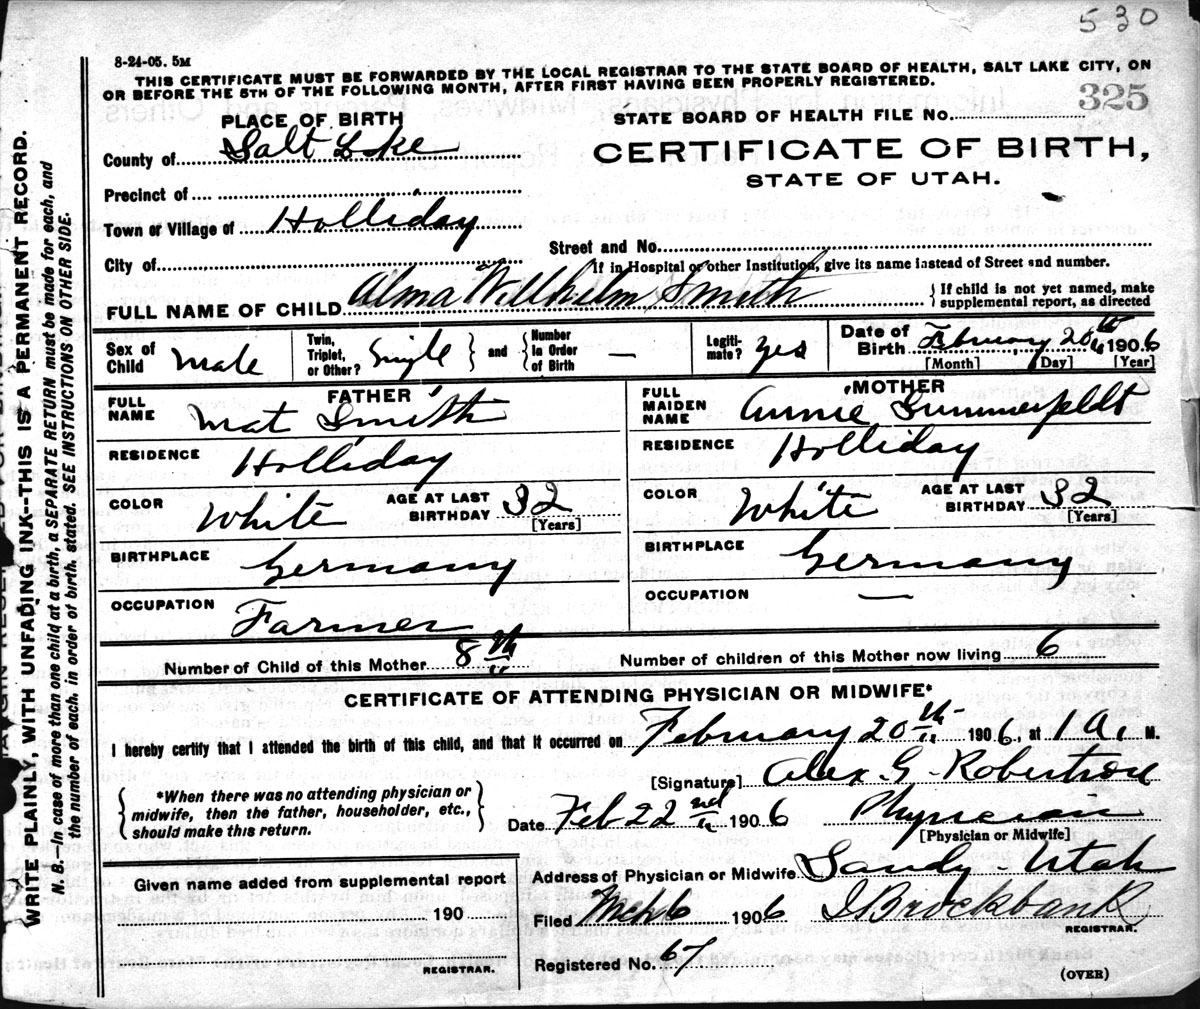 530
8-24-05. 5M
THIS CERTIFICATE MUST BE FORWARDED BY THE LOCAL REGISTRAR TO THE STATE BOARD OF HEALTH, SALT LAKE CITY, ON
OR BEFORE THE 5TH OF THE FOLLOWING MONTH, AFTER FIRST HAVING BEEN PROPERLY REGISTERED.
PLACE OF BIRTH
STATE BOARD OF HEALTH FILE No. 325
County of Salt Lake
CERTIFICATE OF BIRTH,
STATE OF UTAH.
Precinct of
Town or Village of Holliday
Street and No.
City of
If in Hospital or other Institution, give its name instead of Street and number.
FULL NAME OF CHILD Alma Willhelm Smith
{ If child is not yet named, make
supplemental report, as directed
Sex of Child Male
Twin, Triplet, or Other? Single } and { Number in Order of Birth —
Legiti-mate? yes
Date of Birth February 20th 1906
[Month] [Day] [Year]
FATHER
FULL NAME Mat Smith
RESIDENCE Holliday
COLOR White
AGE AT LAST BIRTHDAY 32
[Years]
BIRTHPLACE Germany
OCCUPATION Farmer
MOTHER
FULL MAIDEN NAME Annie Summerfeldt
RESIDENCE Holliday
COLOR White
AGE AT LAST BIRTHDAY 32
[Years]
BIRTHPLACE Germany
OCCUPATION —
Number of Child of this Mother 8th
Number of children of this Mother now living 6
CERTIFICATE OF ATTENDING PHYSICIAN OR MIDWIFE*
I hereby certify that I attended the birth of this child, and that it occurred on February 20th 1906, at 1 A. M.
{ *When there was no attending physician or
midwife, then the father, householder, etc.,
should make this return. }
[Signature] Alex G. Robertson
Date Feb 22nd 1906 Physician
[Physician or Midwife]
Given name added from supplemental report
190
REGISTRAR.
Address of Physician or Midwife Sandy Utah
Filed Mch 6 1906 Brockbank
REGISTRAR.
Registered No. 67
(OVER)
WRITE PLAINLY, WITH UNFADING INK--THIS IS A PERMANENT RECORD.
N. B.--In case of more than one child at a birth, a SEPARATE RETURN must be made for each, and
the number of each, in order of birth, stated. SEE INSTRUCTIONS ON OTHER SIDE.